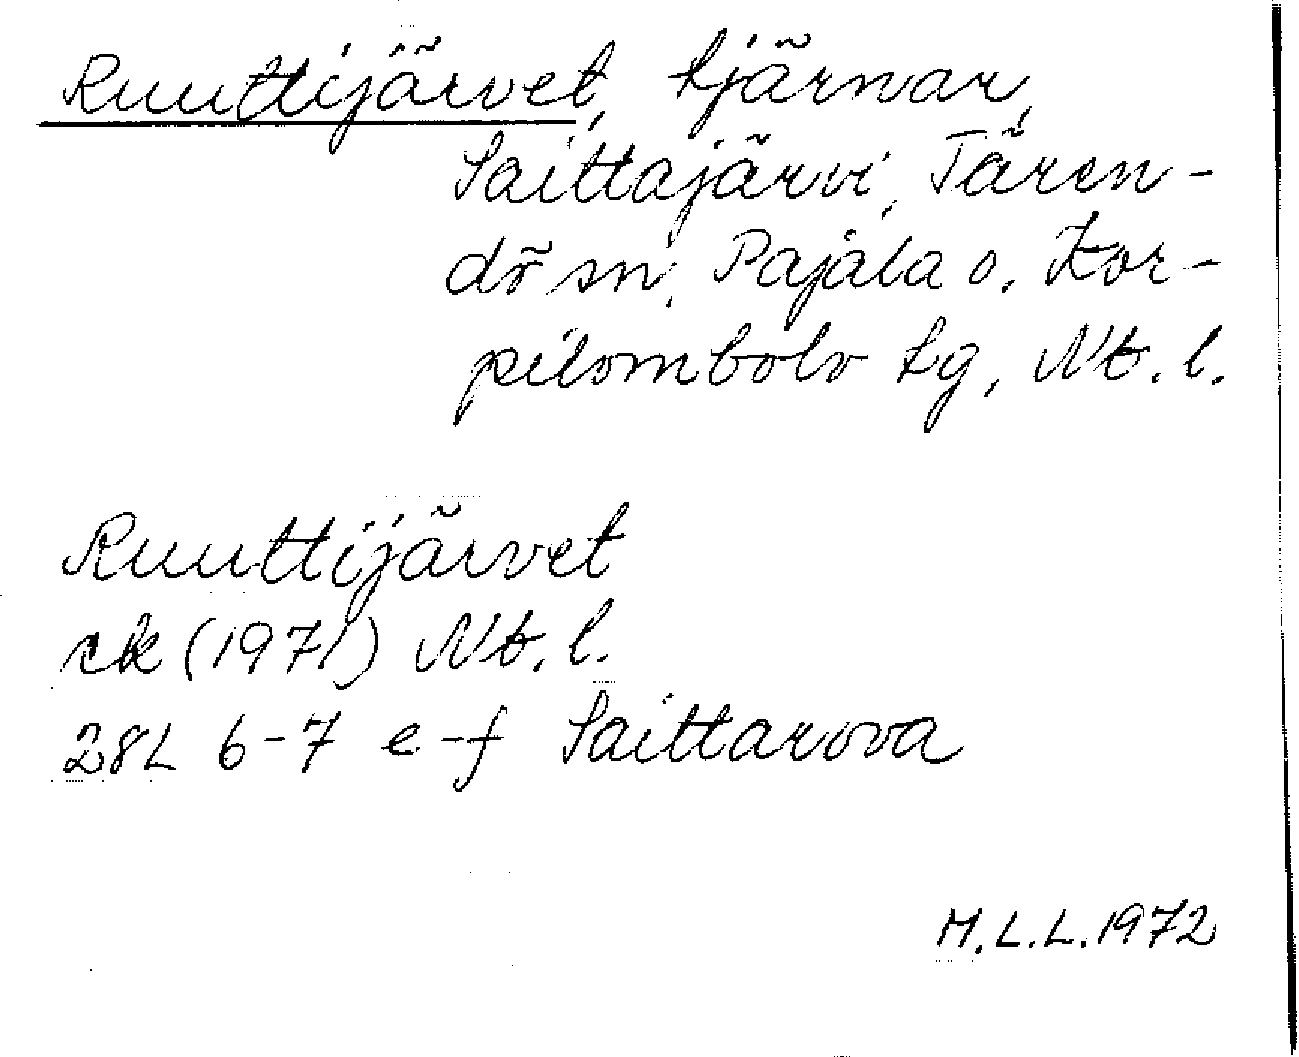 Ruuttijärvet, tjärnar,
Saittajärvi, Tären-
dö sn, Pajala o. Kor-
pilombolo tg, Nb. l.
Ruuttijärvet
rk (1971) Nb. l.
28L 6-7 e-f Saittarova
M.L.L. 1972